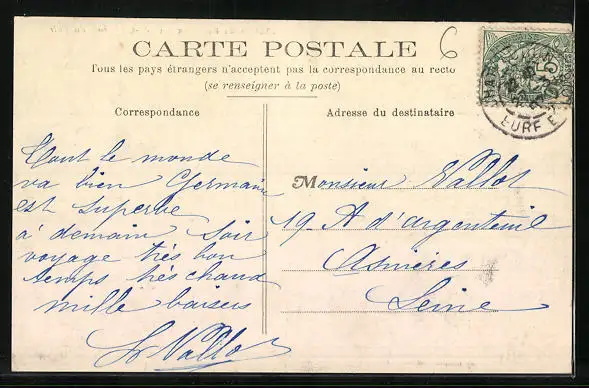 CARTE POSTALE
6
Tous les pays étrangers n'acceptent pas la correspondance au recto
(se renseigner à la poste)
Correspondance
Adresse du destinataire
Tout le monde
va bien Germaine
est superbe
à demain soir
voyage très bon
temps très chaud
mille baisers
Vallot
Monsieur Vallot
19 R d'argenteuil
Asnières
Seine
5
EURE E